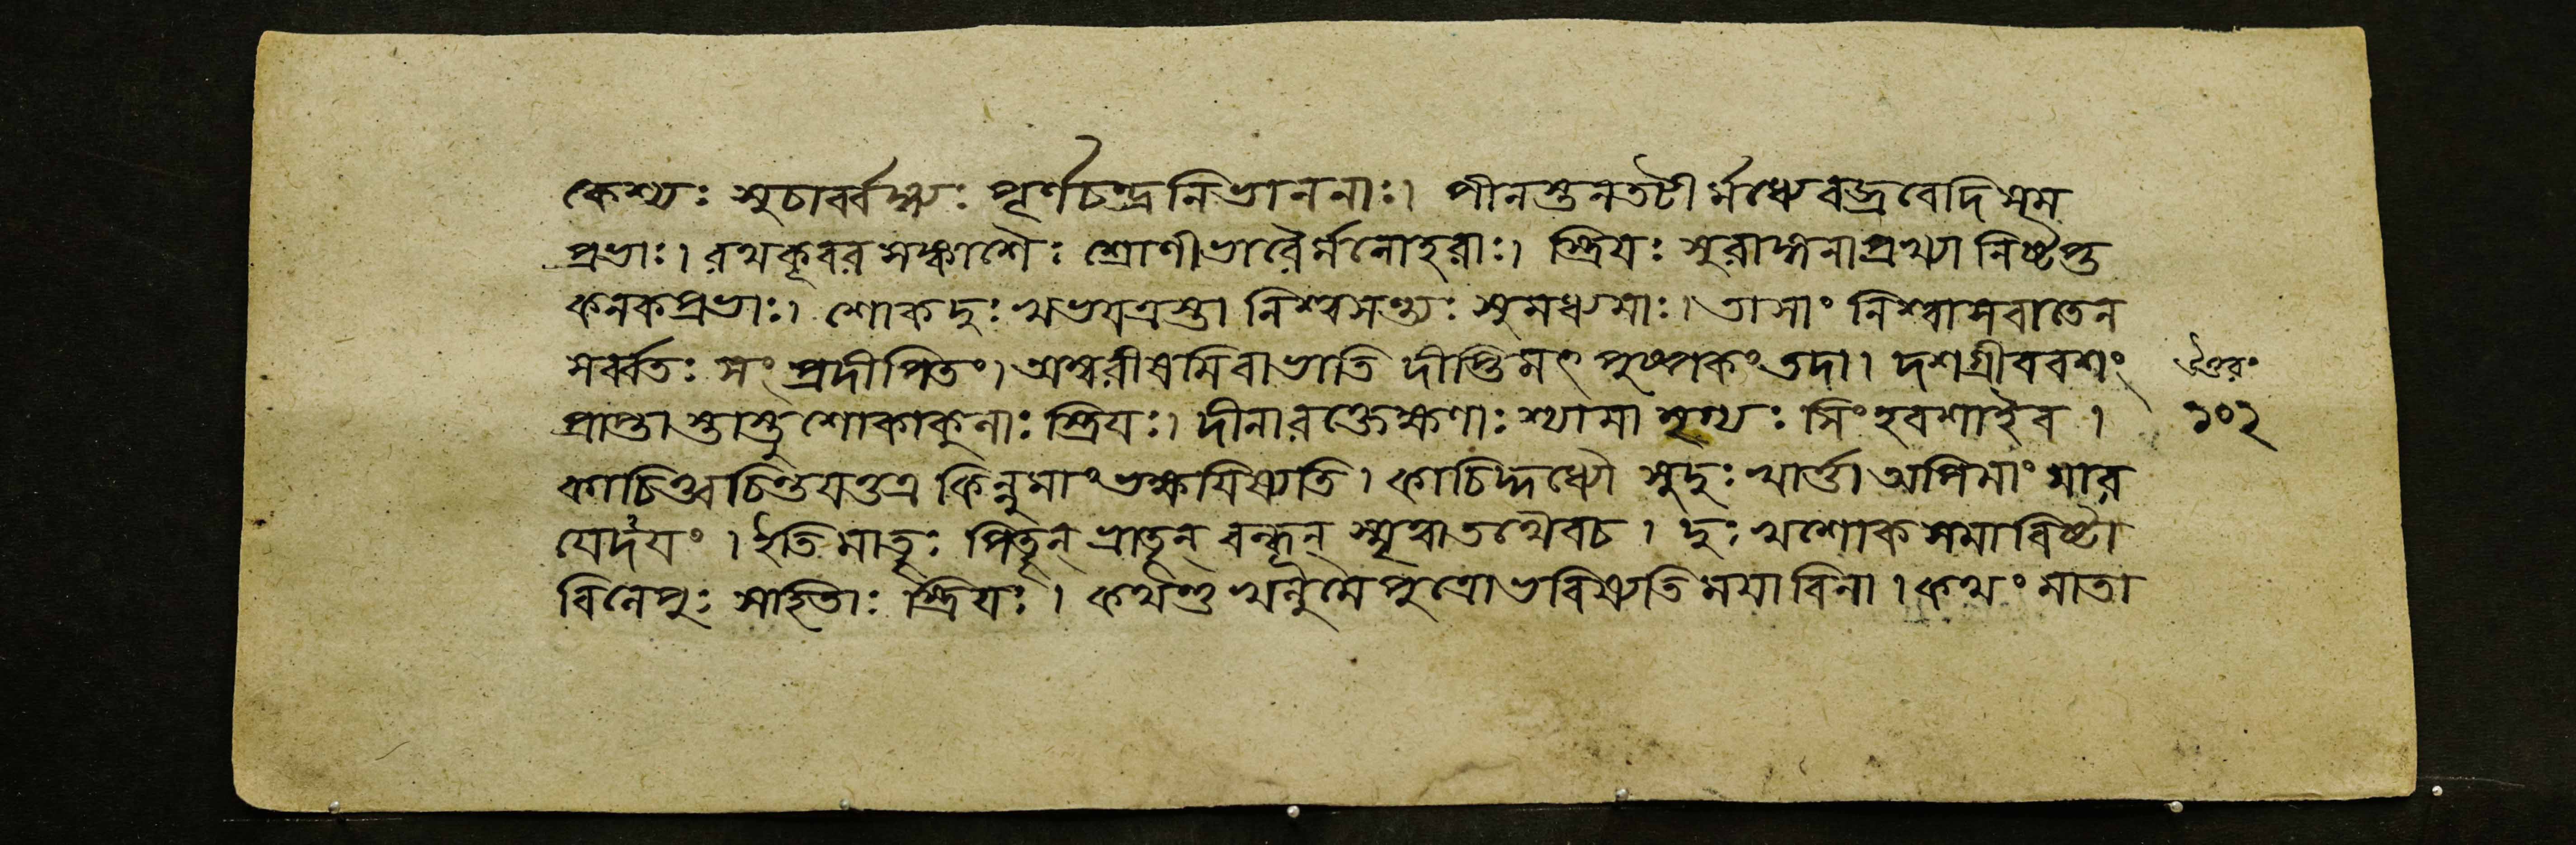 কেশ্যঃ সুচার্ব্বঙ্গ্যঃ পূর্ণচন্দ্রনিভাননাঃ। পীনস্তনতটীর্মধ্যেবজ্রবেদিসম
প্রভাঃ। রথকূবরসঙ্কাশৈঃ শ্রোণীভারৈর্মনোহরাঃ। স্ত্রিয়ঃ সুরাঙ্গনাপ্রখ্যা নিষ্টপ্ত
কনকপ্রভাঃ। শোকদুঃখভয়ত্রস্তা নিশ্বসন্ত্যঃ সুমধ্যমাঃ। তাসাং নিশ্বাসবাতেন
সর্ব্বতঃ সংপ্রদীপিতং। অম্বরীষমিবাভাতি দীপ্তিমৎ পুষ্পকং তদা। দশগ্রীববশং
প্রাপ্তা স্তাস্তু শোকাকুলাঃ স্ত্রিয়ঃ। দীনারক্তেক্ষণাঃ শ্যামা মৃগ্যঃ সিংহবশাইব।
কাচিচ্চ চিন্তয়ত্তত্র কিন্নুমাং ভক্ষয়িষ্যতি। কাচিদ্দধ্যৌ সুদুঃখার্ত্তা অপিমাং মার
য়েদয়ং। ইতি মাতৄঃ পিতৄন্ ভ্রাতৄন্ বন্ধূন্ স্মৃত্বা তথৈবচ। দুঃখশোকসমাবিষ্টা
বিলেপুঃ সহিতাঃ স্ত্রিয়ঃ। কথন্তু খলুমে পুত্রো ভবিষ্যতি ময়া বিনা। কথং মাতা
উত্তরঃ
১০২